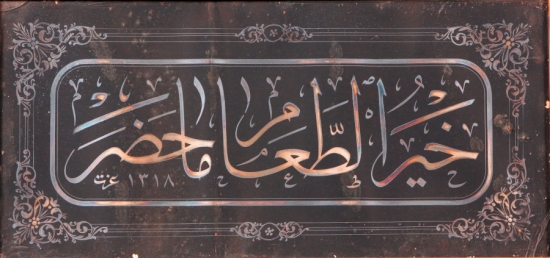 خير الطعام ما حضر
عزت ١٣١٨